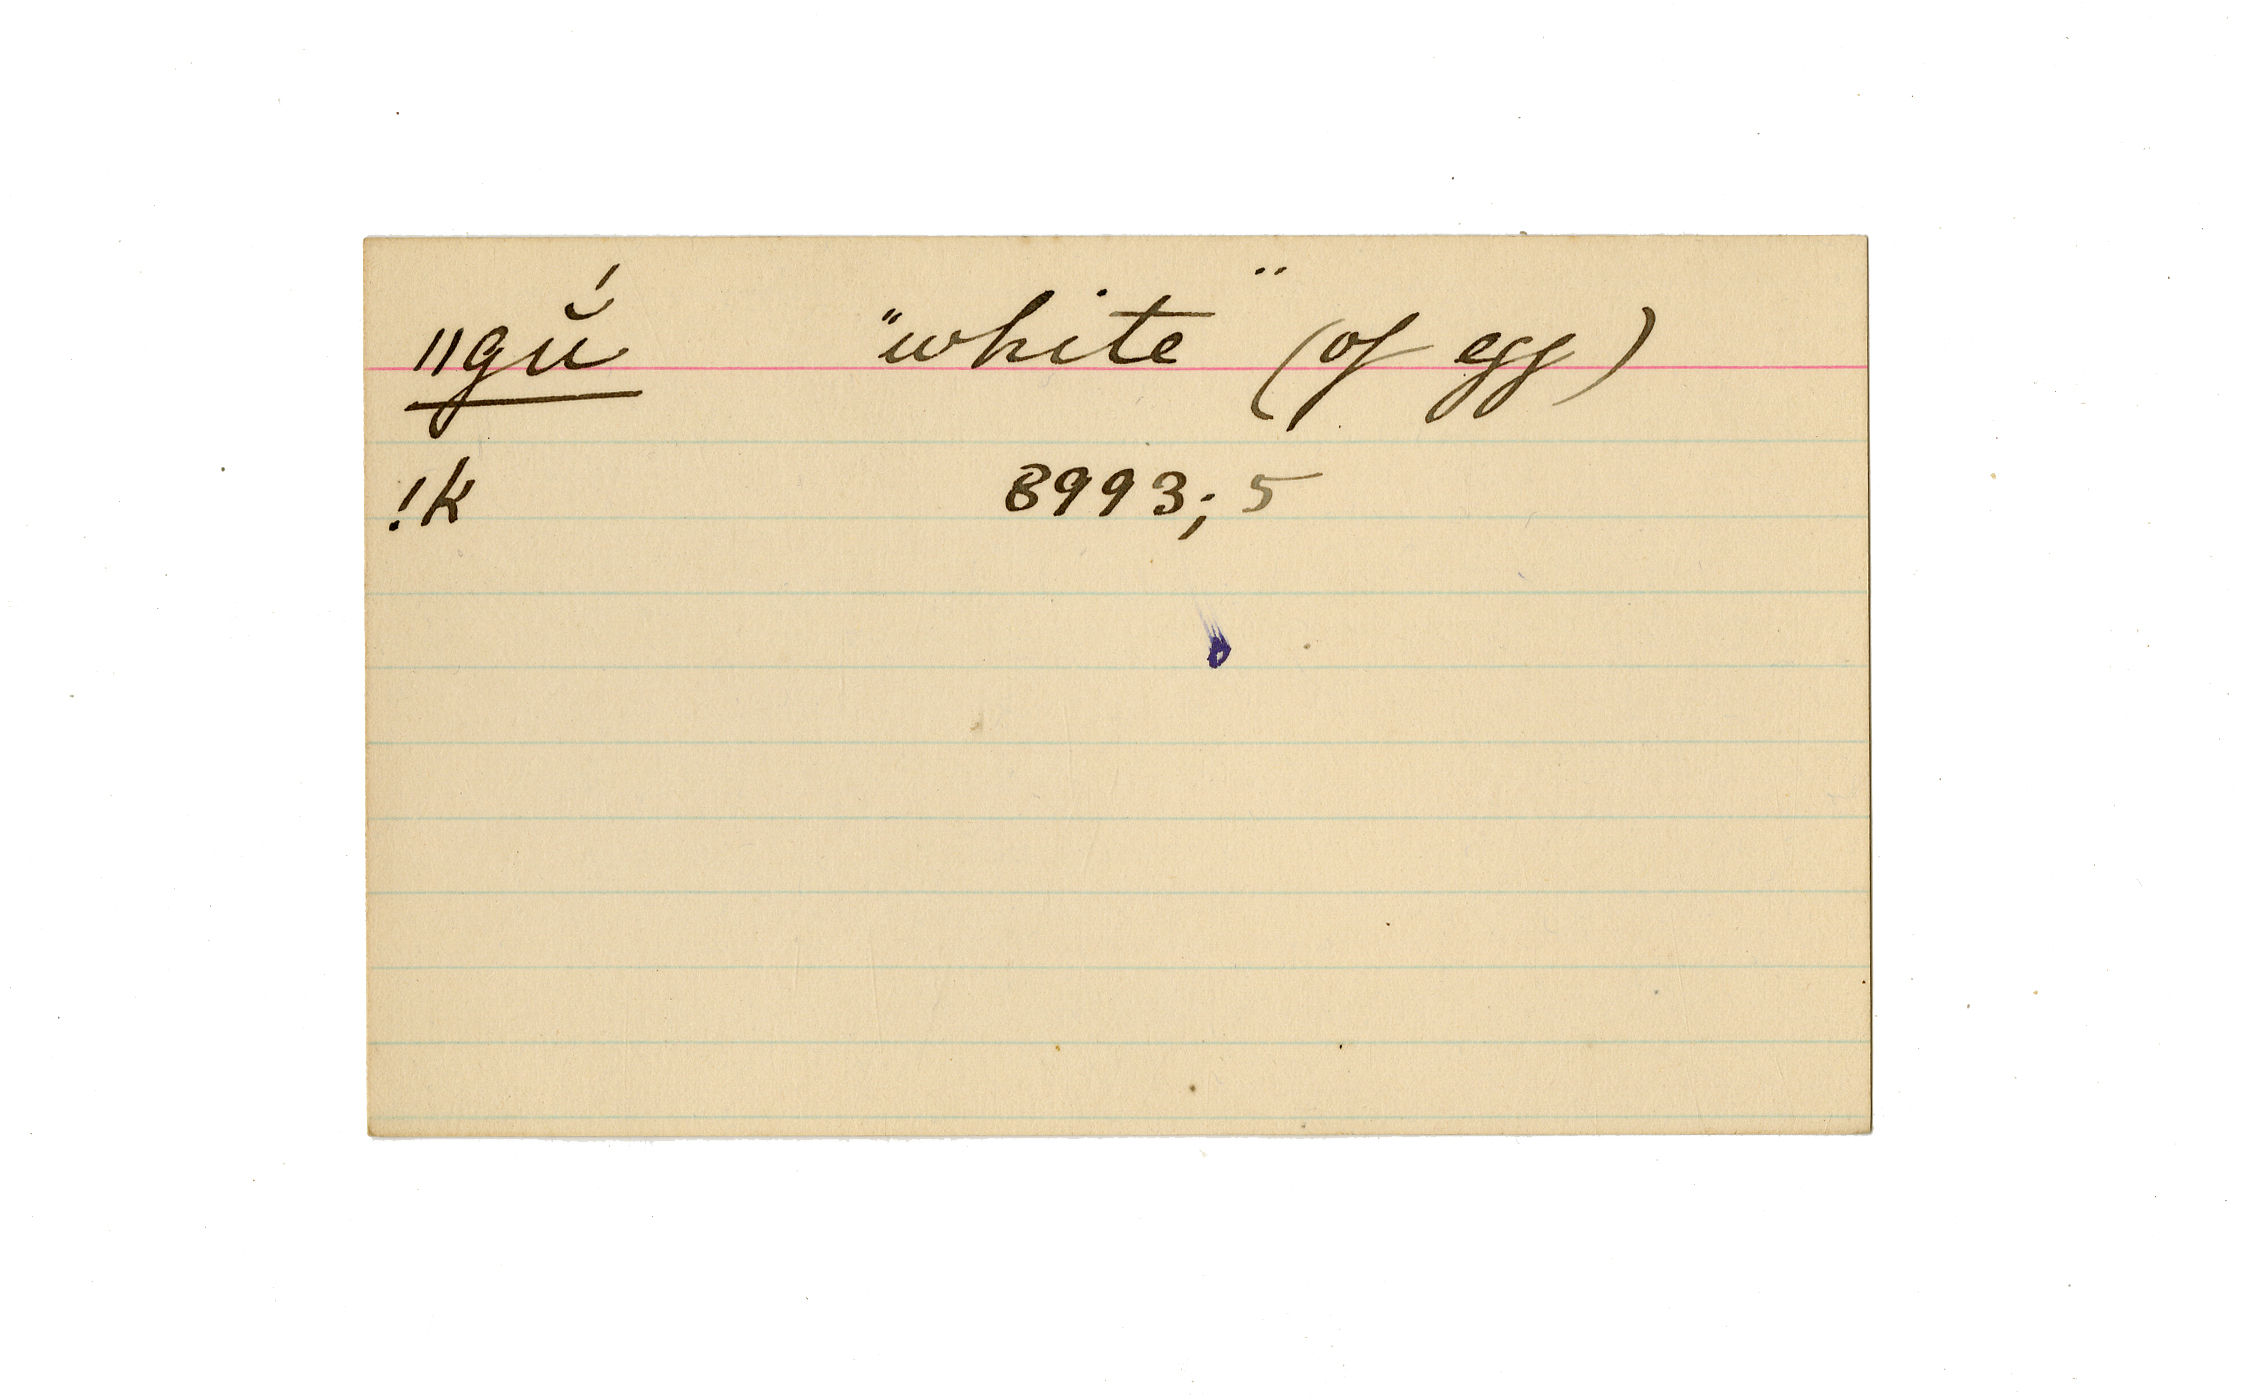 ǁgŭ́ "white" (of egg)
!k 8993; 5